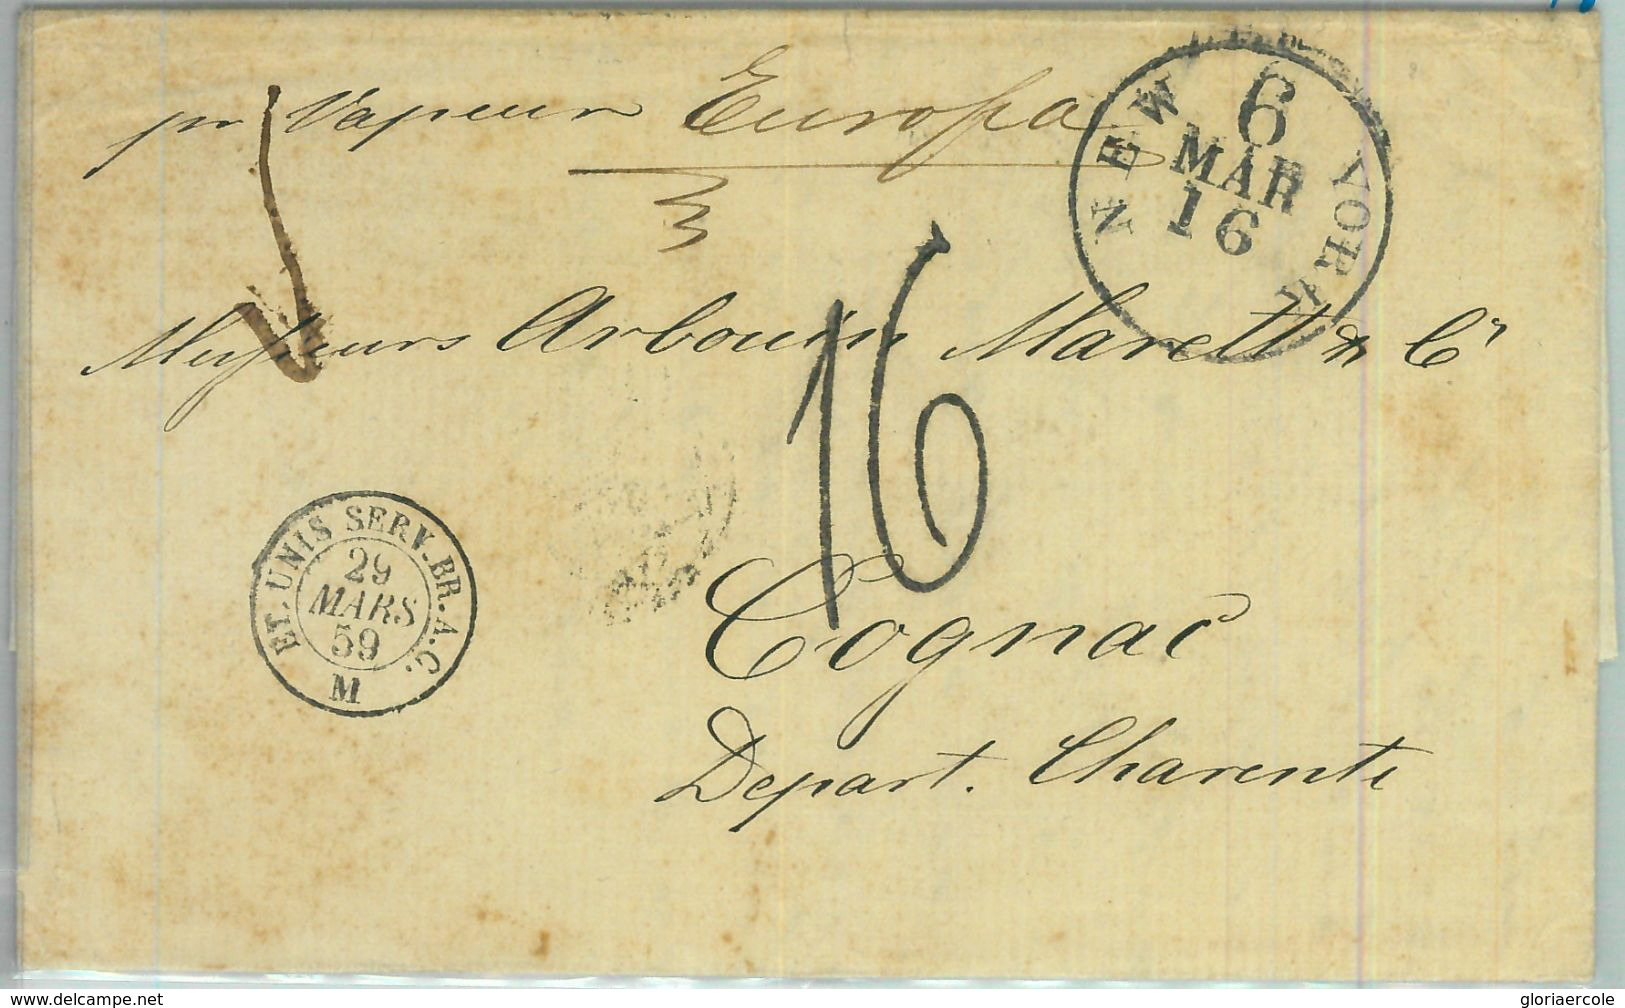 pr Vapeur Europa
NEW YORK
6
MAR
16
Messieurs Arbouin Marett & Co
16
ET. UNIS SERV. BR. A. C.
29
MARS
59
M
Cognac
Depart. Charente
www.delcampe.net
gloriaercole